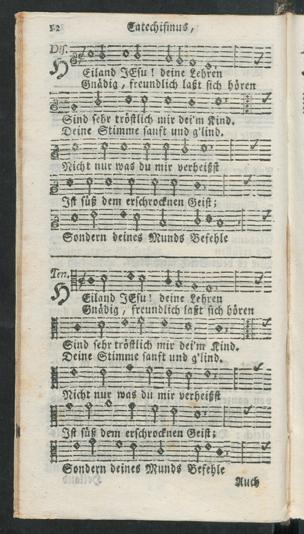 12 Catechismus,
Dis.
Heiland JEsu! deine Lehren
Gnädig, freundlich laßt sich hören
Sind sehr tröstlich mir dei'm Kind.
Deine Stimme sanft und g'lind.
Nicht nur was du mir verheißst
Ist süß dem erschrocknen Geist;
Sondern deines Munds Befehle
Ten.
Heiland JEsu! deine Lehren
Gnädig, freundlich laßt sich hören
Sind sehr tröstlich mir dei'm Kind.
Deine Stimme sanft und g'lind.
Nicht nur was du mir verheißst
Ist süß dem erschrocknen Geist;
Sondern deines Munds Befehle
Auch